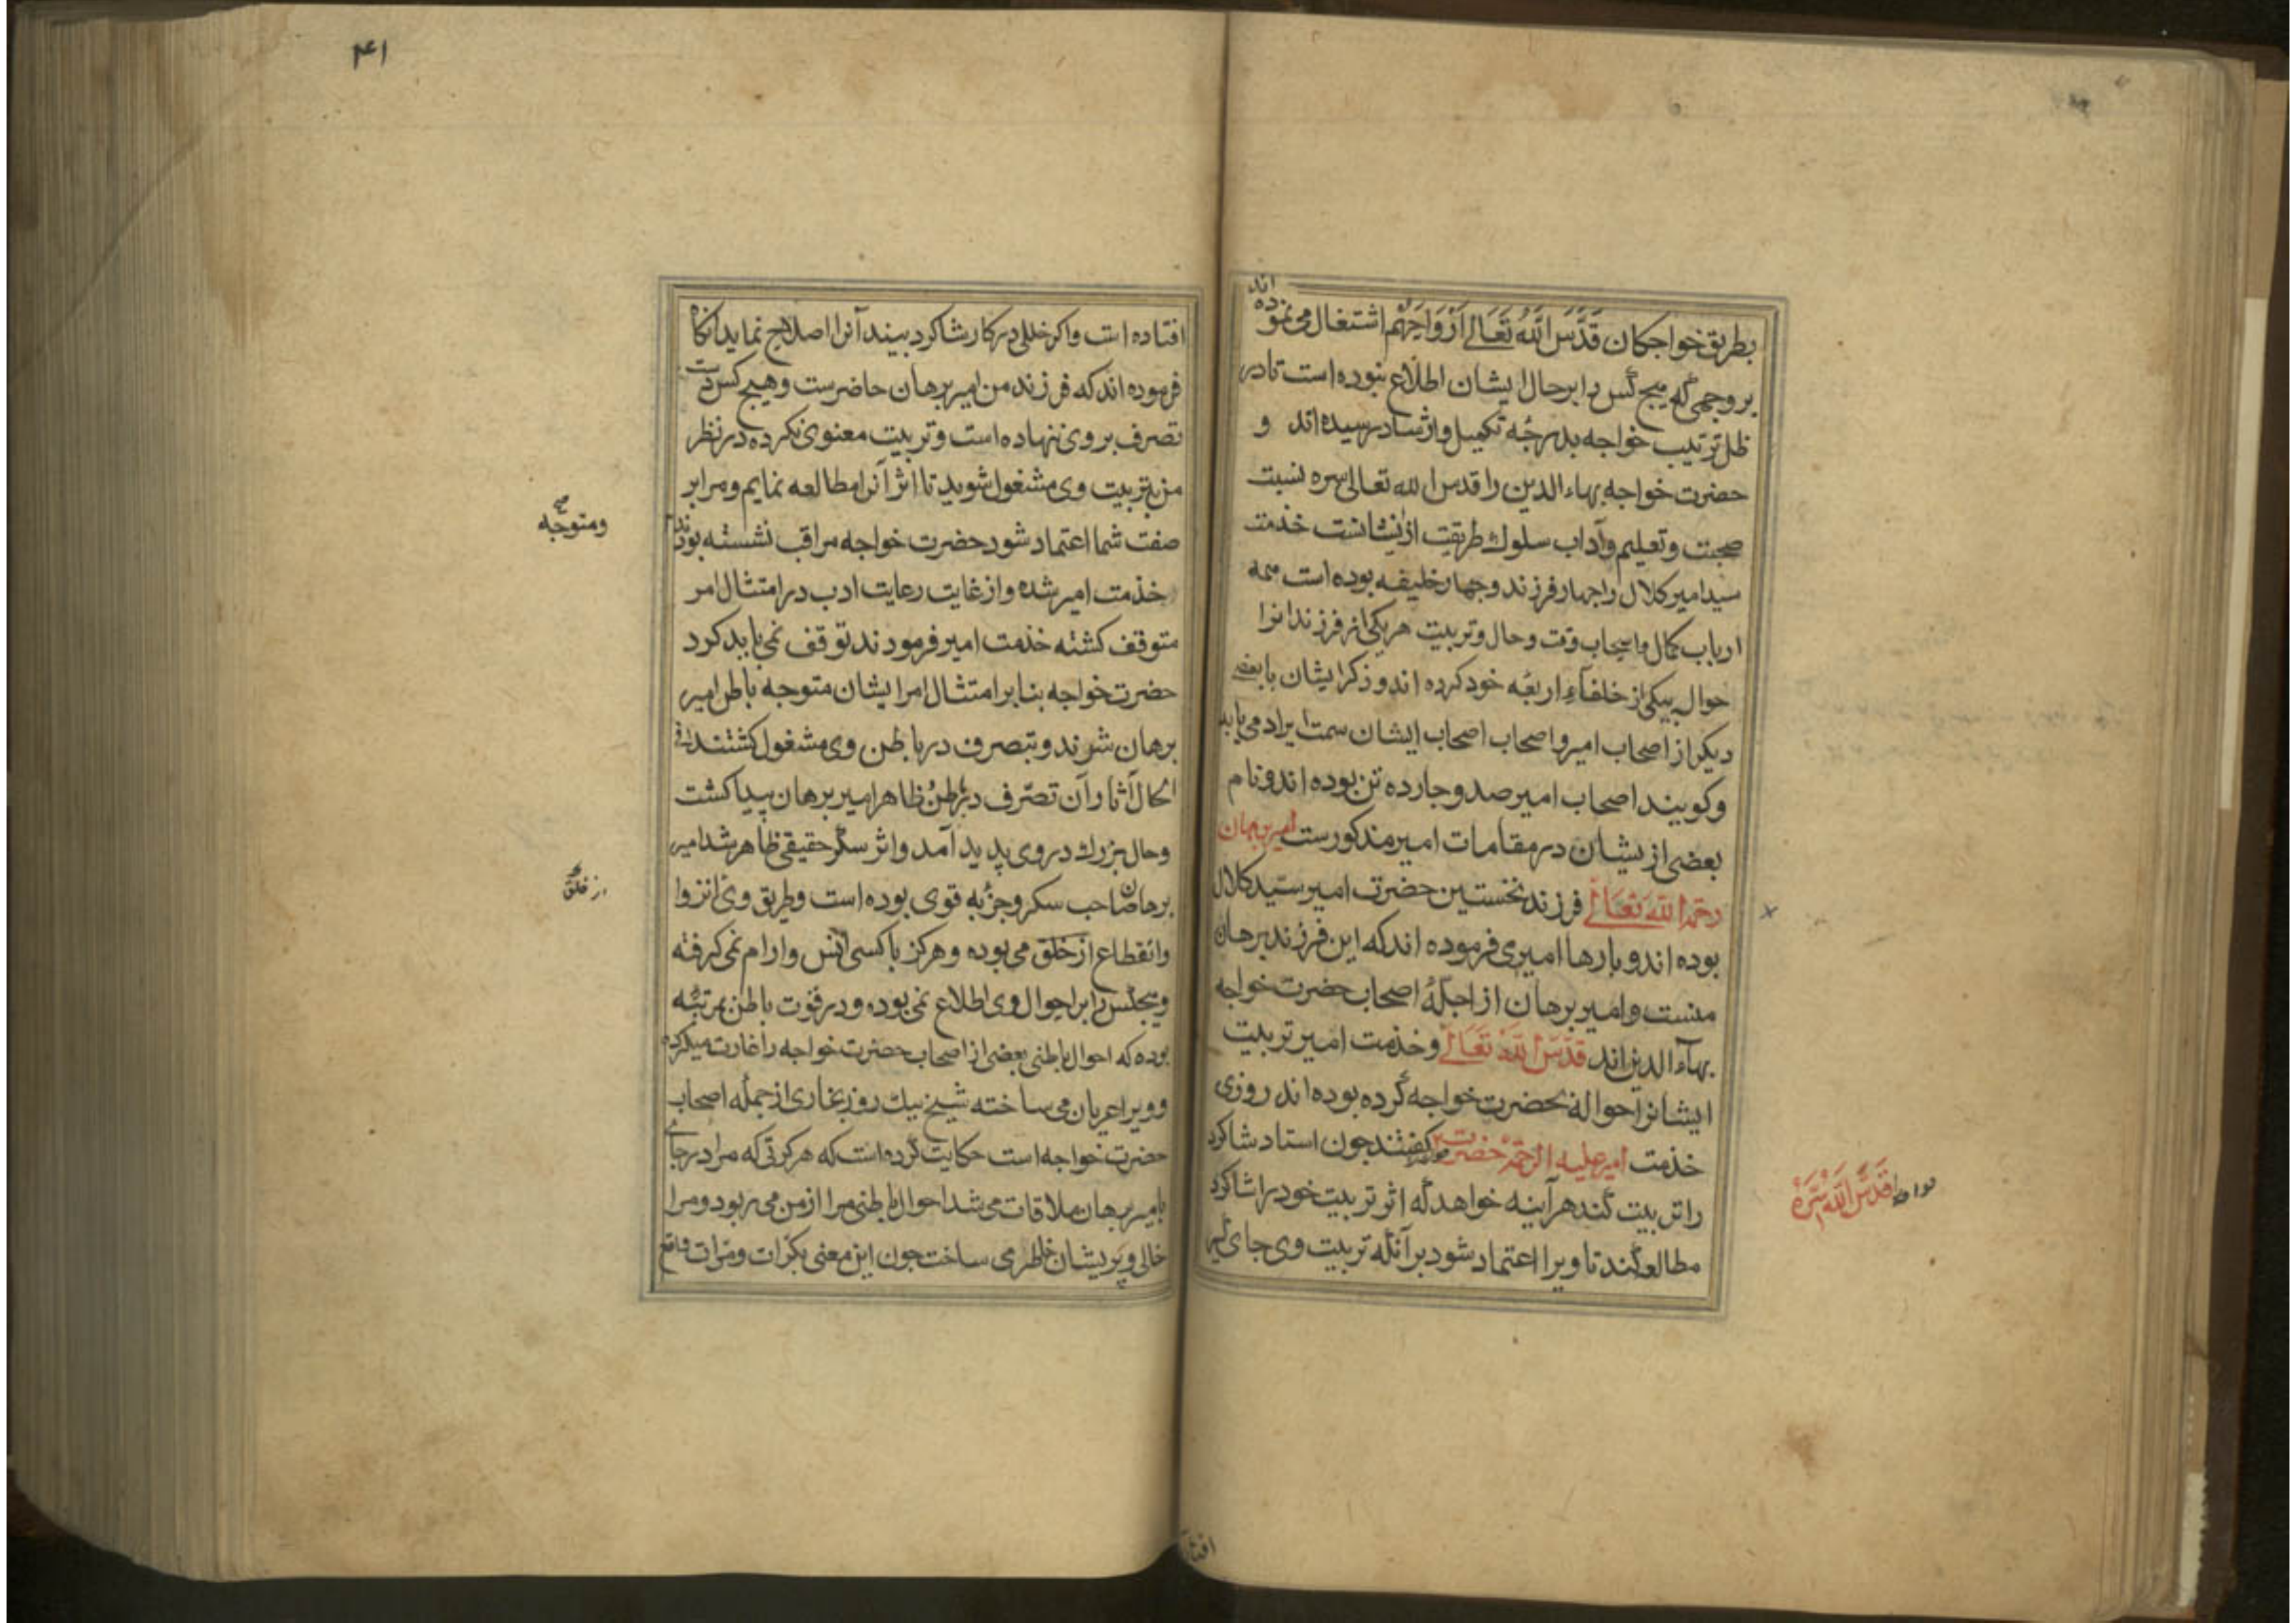 بطریق خواجکان قَدَّسَ اللّٰهُ تَعَالٰے اَرْوَاحَهُم اشتغال می نموده اند
بر وجهی که هیچ کس را بر حال ایشان اطلاع نبوده است تا در
ظل تربیت خواجه بدرجهٔ تکمیل و ارشاد رسیده اند و
حضرت خواجه بهاء الدین را قدس الله تعالی سره نسبت
صحبت و تعلیم وآداب سلوك طریقت از ایشانست خذمت
سید امیر کلال را جهار فرزند و جهار خلیفه بوده است همه
ارباب کمال و اصحاب وقت و حال و تربیت هر یکی از فرزندانرا
حوال بیکی از خلفآء اربعه خود کرده اند و ذکر ایشان با بعضے
دیکر از اصحاب امیر و اصحاب اصحاب ایشان سمت ایراد می یابد
و کویند اصحاب امیر صد و جارده تن بوده اند و نام
بعضی از یشان در مقامات امیر مذکورست امیر برهان
رحمه الله تعالے فرزند نخستین حضرت امیر سید کلال
بوده اند و بارها امیر می فرموده اند که این فرزند برهان
منست و امیر برهان از اجلّهٔ اصحاب حضرت خواجه
بهآء الدین اند قدّس الله تَعَالٰے و خذمت امیر تربیت
ایشانرا حواله بحضرت خواجه کرده بوده اند روزی
خذمت امیر علیه الرحمه حضرت خواجه را کفتند جون استاد شاکرد
را تربیت کند هر آینه خواهد که اثر تربیت خود را شاکرد
مطالعه کند تا ویرا اعتماد شود بر آنکه تربیت وی جای کیر
قَدَّسَ اللّٰهُ سِرَّهُ
افتاده
۴۱
افتاده است و اکر خللی در کار شاکرد بیند آنرا اصلاح نماید انکاه
فرموده اند که فرزند من امیر برهان حاضرست و هیچ کس دست
تصرف بر وی ننهاده است و تربیت معنوی نکرده در نظر
من بتربیت وی مشغول شوید تا اثر آنرا مطالعه نمایم و مرا بر
صفت شما اعتماد شود حضرت خواجه مراقب نشسته بودند
خذمت امیر شده و از غایت رعایت ادب در امتثال امر
متوقف کشته خذمت امیر فرمودند توقف نمی باید کرد
حضرت خواجه بنا بر امتثال امر ایشان متوجه باطن امیر
برهان شدند و بتصرف در باطن وی مشغول کشتند فی
الحال آثار آن تصرّف در باطن و ظاهر امیر برهان پیدا کشت
و حال بزرك در وی پدید آمد و اثر سکر حقیقی ظاهر شد امیر
برهان صاحب سکر و جذبه قوی بوده است و طریق وی انزوا
و انقطاع از خلق می بوده و هرکز با کسی انس و ارام نمی کرفته
و هیچکس را بر احوال وی اطلاع نمی بوده و در قوت باطن بمرتبهٔ
بوده که احوال باطنی بعضی از اصحاب حضرت خواجه را غارت میکرده
و ویرا عریان می ساخته شیخ نیك روز بخاری از جمله اصحاب
حضرت خواجه است حکایت کرده است که هر کرتی که مرا در جائے
با میر برهان ملاقات می شد احوال باطنی مرا از من می ربود و مرا
خالی و پریشان خاطر می ساخت جون این معنی بکرّات و مرّات واقع
صح
و متوجّه
از خلق